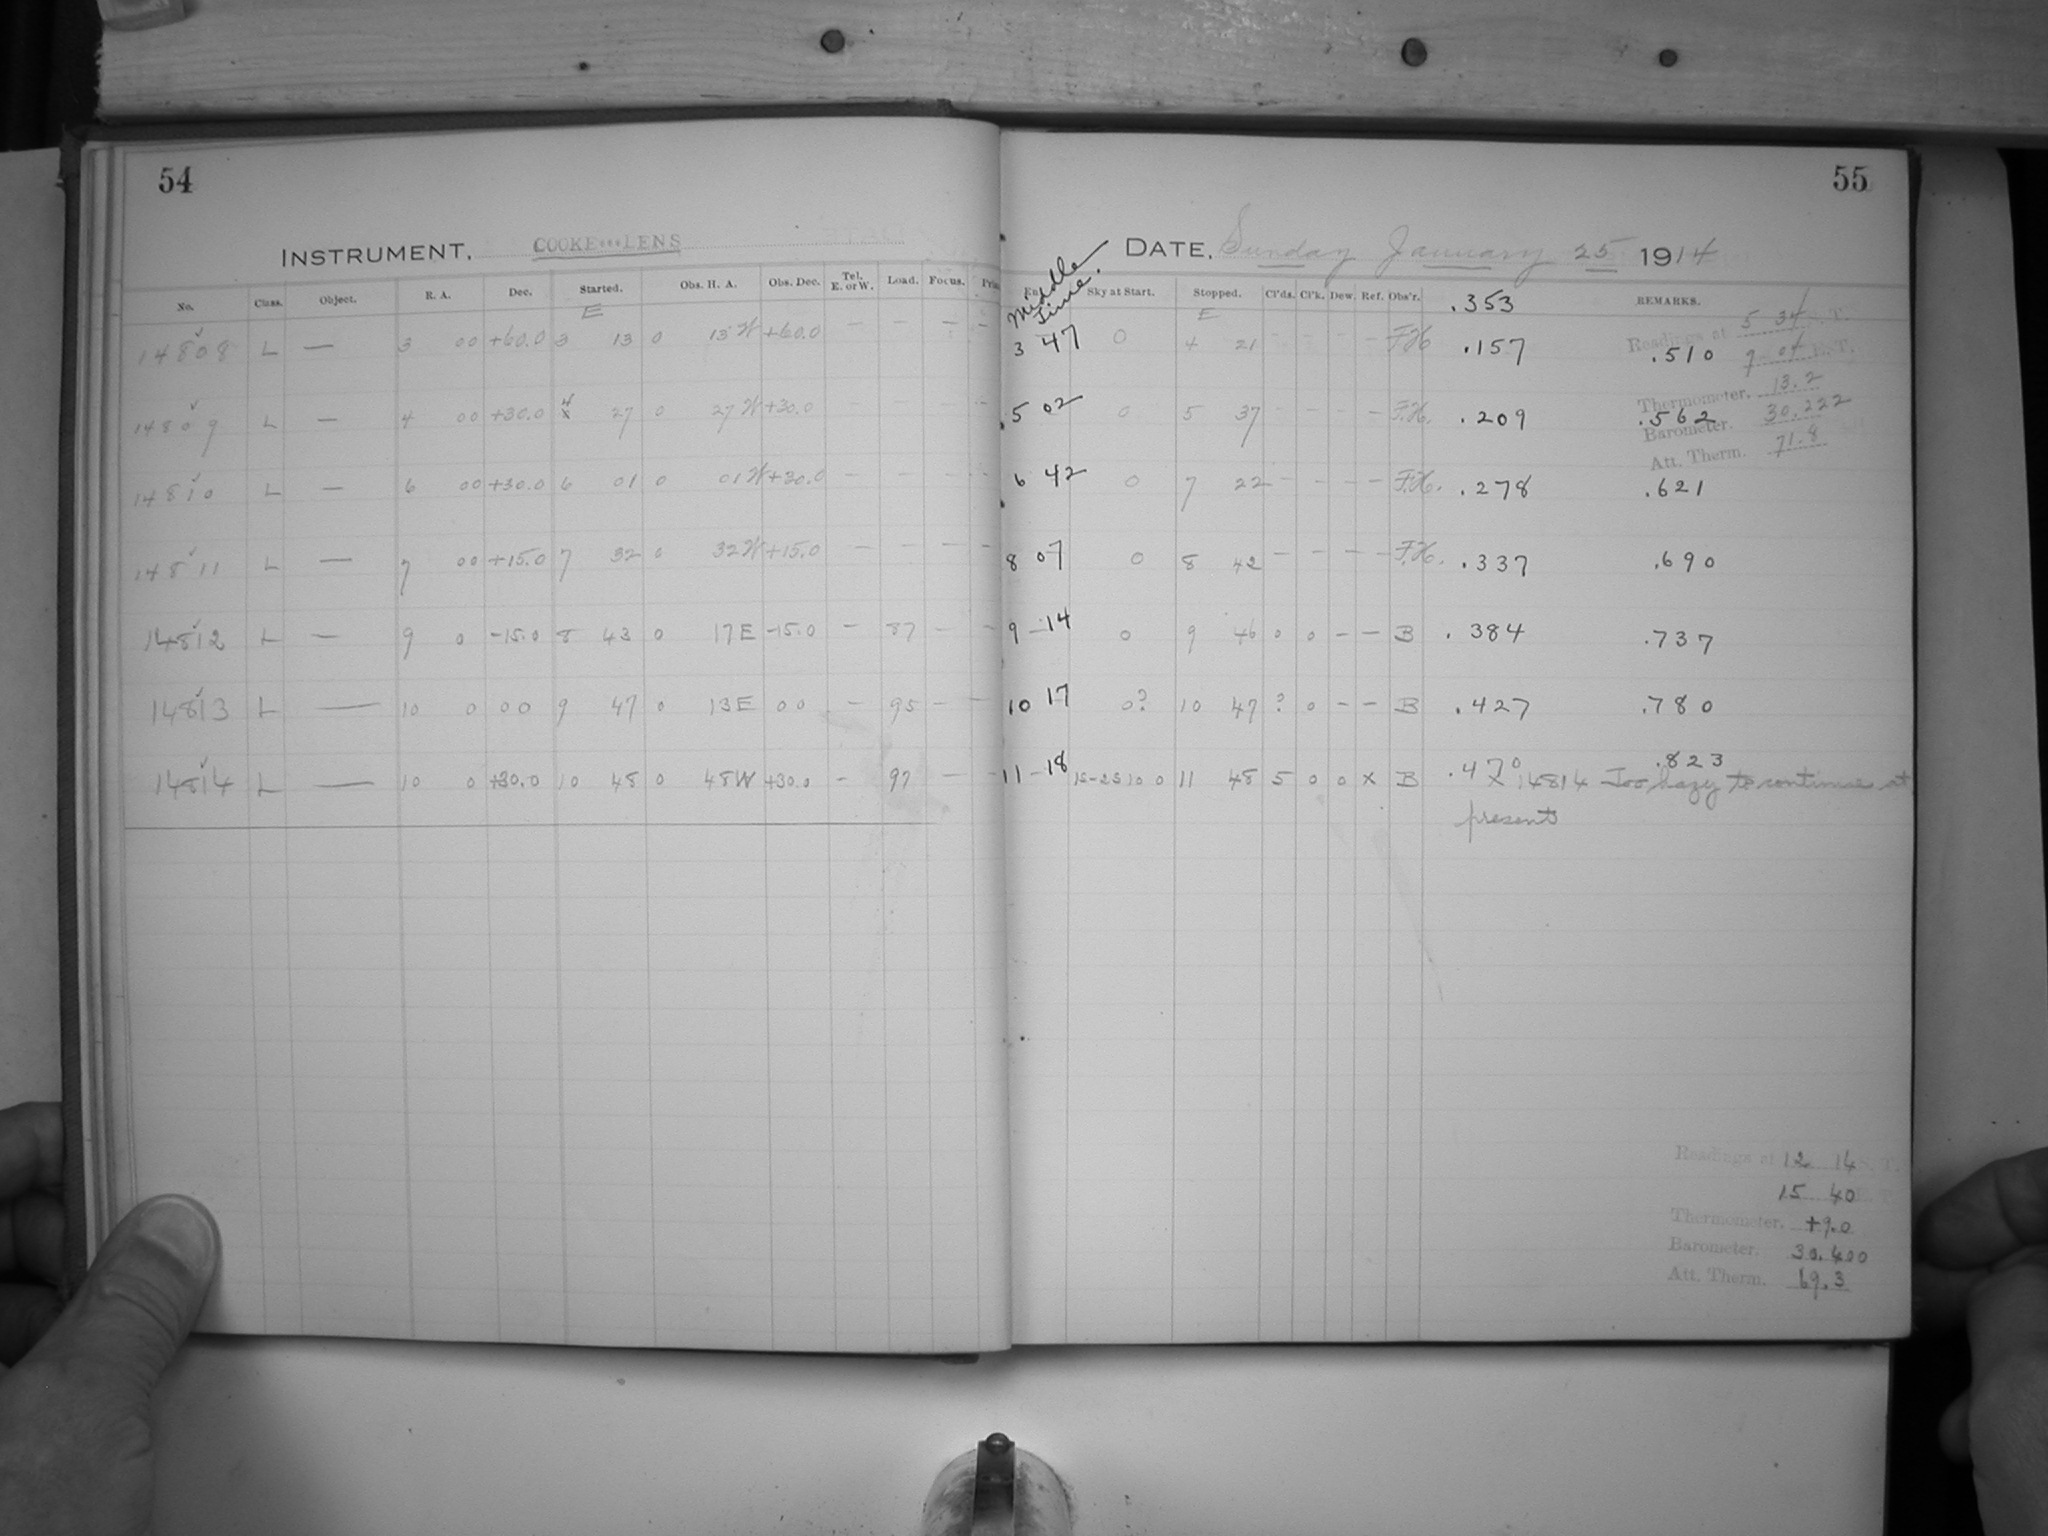 54
INSTRUMENT, COOKE LENS
No. Class. Object. R. A. Dec. Started. Obs. H. A. Obs. Dec. Tel. E. or W. Load. Focus.
E
14808 L — 3 00 +60.0 3 13 0 13 W +60.0 — — — —
14809 L — 4 00 +30.0 4 27 0 27 W +30.0 — — — —
14810 L — 6 00 +30.0 6 01 0 01 W +30.0 — — — —
14811 L — 7 00 +15.0 7 32 0 32 W +15.0 — — — —
14812 L — 9 0 -15.0 8 43 0 17 E -15.0 — 87 — —
14813 L — 10 0 00 9 47 0 13 E 00 — 95 — —
14814 L — 10 0 +30.0 10 48 0 48 W +30.0 — 97 — —
55
DATE, Sunday January 25 1914
Middle Time. Sky at Start. Stopped. Cl'ds. Cl'k. Dew. Ref. Obs'r. .353 REMARKS.
E
3 47 0 4 21 - - - - F.H. .157 .510
5 02 0 5 37 - - - - F.H. .209 .562
6 42 0 7 22 - - - - F.H. .278 .621
8 07 0 8 42 - - - - F.H. .337 .690
9 - 14 0 9 46 0 0 - - B .384 .737
10 17 0? 10 47 ? 0 - - B .427 .780
11 - 18 10 0 11 48 5 0 0 x B .470 .823
x 14814 Too hazy to continue at
present
Readings at 5 34 S. T.
9 04 E. T.
Thermometer. 13.2
Barometer. 30.222
Att. Therm. 71.8
Readings at 12 14 S. T.
15 40
Thermometer. +9.0
Barometer. 30.400
Att. Therm. 69.3